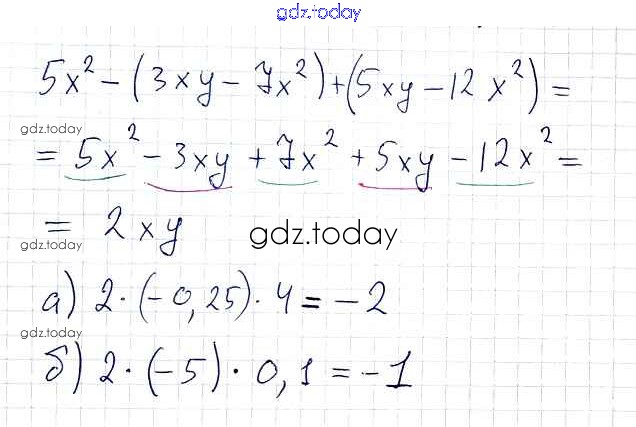 gdz.today
5x² − (3xy − 7x²) + (5xy − 12x²) =
gdz.today
= 5x² − 3xy + 7x² + 5xy − 12x² =
= 2xy
gdz.today
gdz.today
а) 2 · (−0,25) · 4 = −2
gdz.today
б) 2 · (−5) · 0,1 = −1